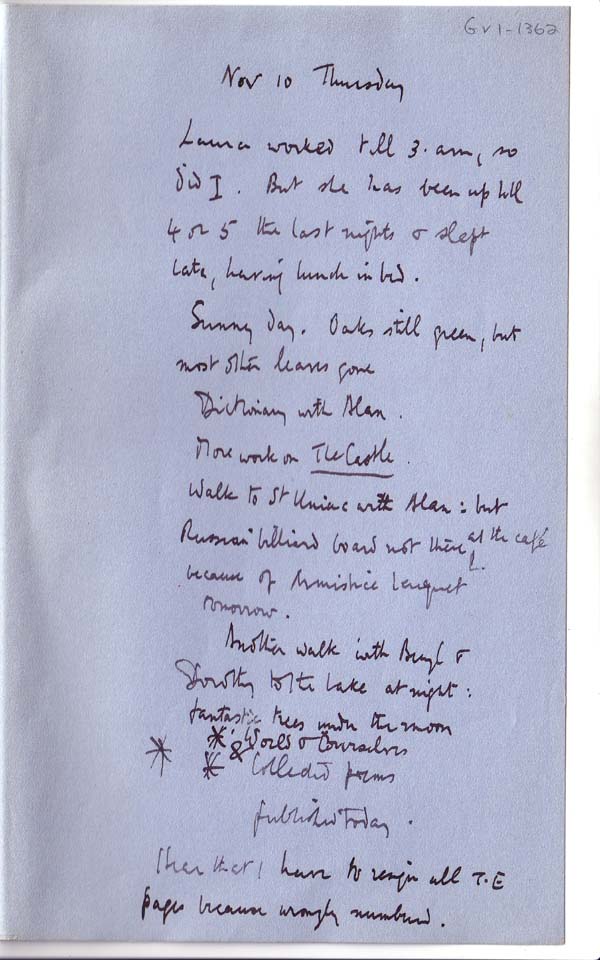 GV1-1362
Nov 10 Thursday
Laura worked till 3. am, so
did I. But she has been up till
4 or 5 the last nights & slept
late, having lunch in bed.
Sunny day. Oaks still green, but
most other leaves gone
Dictionary with Alan.
More work on The Castle.
Walk to St Uniac with Alan: but
Russian billiard board not there at the café
because of Armistice banquet
tomorrow.
Another walk with Beryl &
Dorothy to the lake at night:
fantastic trees under the moon
* World & Ourselves
* * & Collected poems
published today.
I hear that I have to resign all T.E
pages because wrongly numbered.